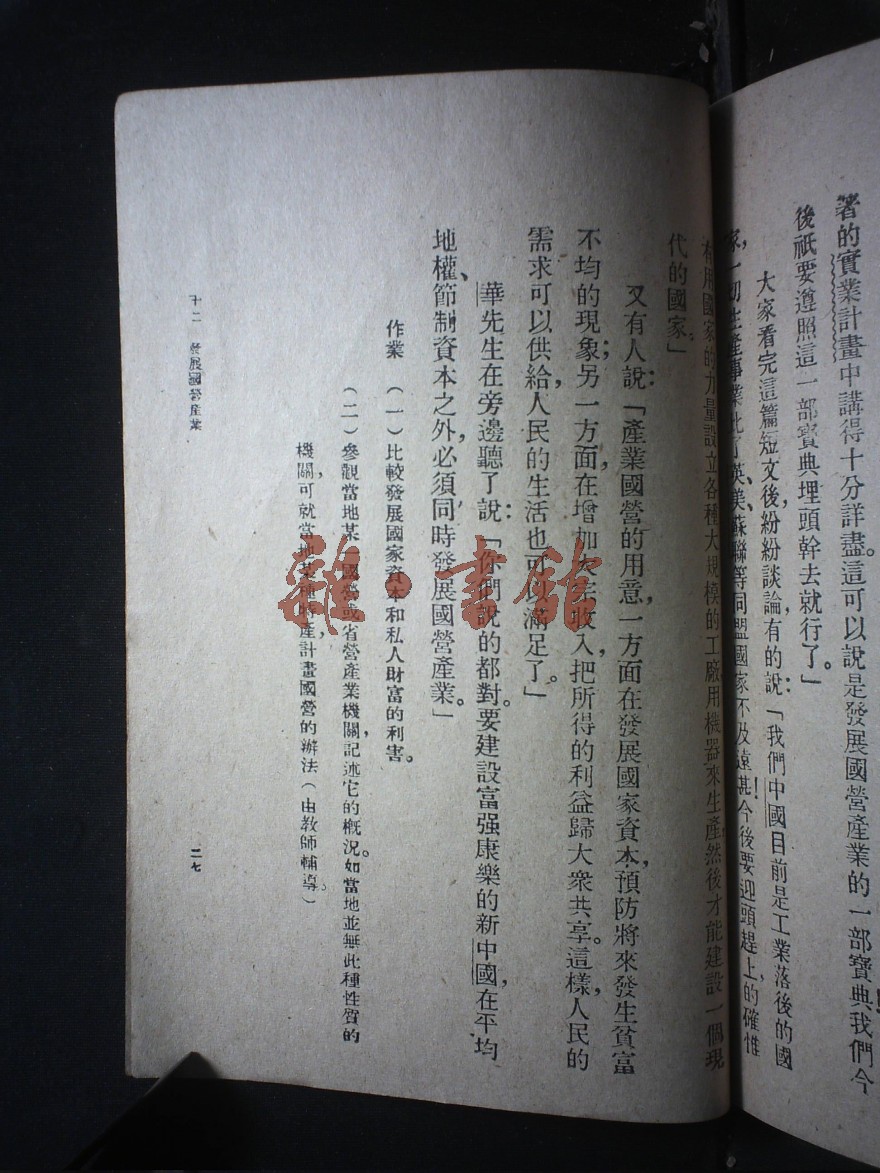 著的實業計畫中講得十分詳盡。這可以說是發展國營產業的一部寶典!我們今
後祇要遵照這一部寶典埋頭幹去就行了。」
大家看完這篇短文後,紛紛談論,有的說:「我們中國目前是工業落後的國
家,一切生產事業比了英、美、蘇聯等同盟國家不及遠甚!今後要迎頭趕上,的確惟
有用國家的力量,設立各種大規模的工廠,用機器來生產,然後才能建設一個現
代的國家。」
又有人說:「產業國營的用意,一方面在發展國家資本,預防將來發生貧富
不均的現象;另一方面,在增加大宗收入,把所得的利益歸大衆共享。這樣,人民的
需求可以供給,人民的生活也可以滿足了。」
華先生在旁邊聽了說:「你們說的都對。要建設富強康樂的新中國,在平均
地權、節制資本之外,必須同時發展國營產業。」
作業 (一)比較發展國家資本和私人財富的利害。
(二)參觀當地某一國營或省營產業機關,記述它的概況。如當地並無此種性質的
機關,可就當地某種特產,計畫國營的辦法(由教師輔導。)
十二 發展國營產業
二七
雜·書館